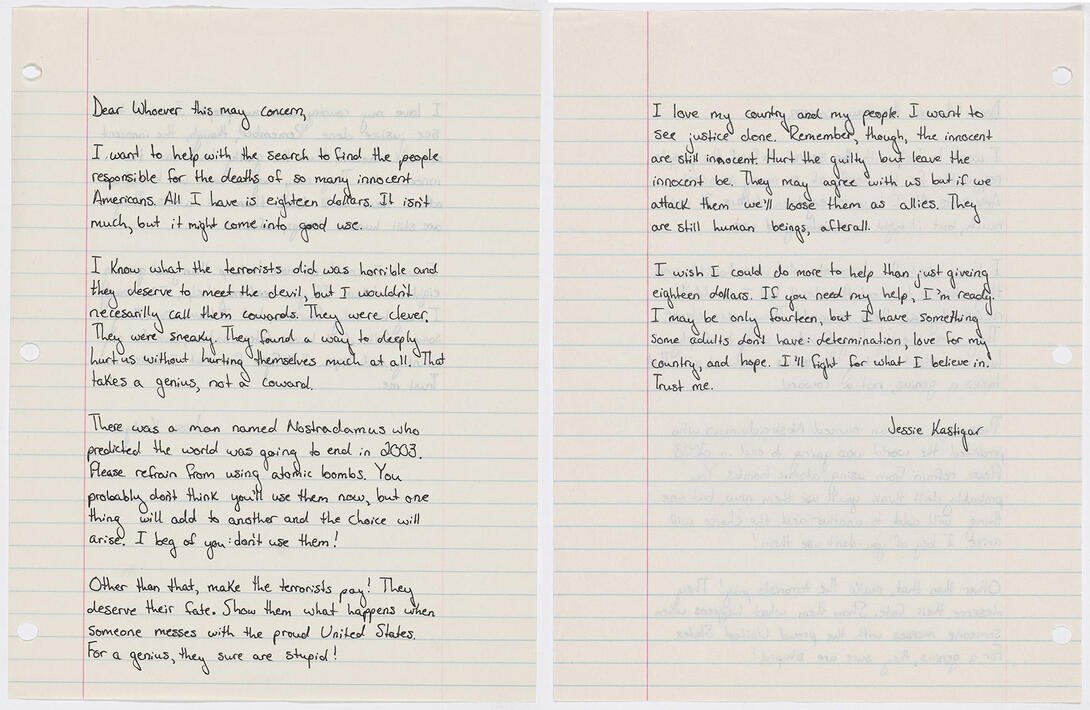 Dear Whoever this may concern,
I want to help with the search to find the people
responsible for the deaths of so many innocent
Americans. All I have is eighteen dollars. It isn't
much, but it might come into good use.
I know what the terrorists did was horrible and
they deserve to meet the devil, but I wouldn't
necesarilly call them cowards. They were clever.
They were sneaky. They found a way to deeply
hurt us without hurting themselves much at all. That
takes a genius, not a coward.
There was a man named Nostradamus who
predicted the world was going to end in 2003.
Please refrain from using atomic bombs. You
probably don't think you'll use them now, but one
thing will add to another and the choice will
arise. I beg of you: don't use them!
Other than that, make the terrorists pay! They
deserve their fate. Show them what happens when
someone messes with the proud United States.
For a genius, they sure are stupid!
I love my country and my people. I want to
see justice done. Remember, though, the innocent
are still innocent. Hurt the guilty but leave the
innocent be. They may agree with us but if we
attack them we'll loose them as allies. They
are still human beings, afterall.
I wish I could do more to help than just giveing
eighteen dollars. If you need my help, I'm ready.
I may be only fourteen, but I have something
some adults don't have: determination, love for my
country, and hope. I'll fight for what I believe in.
Trust me.
Jessie Kastigar